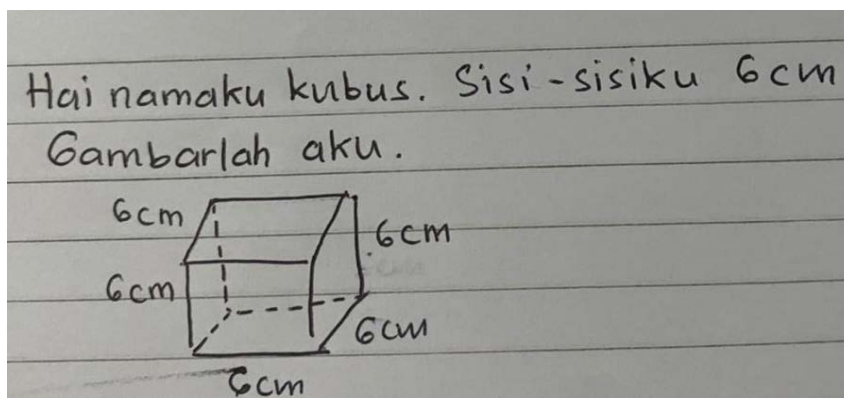 Hai namaku kubus. Sisi-sisiku 6cm
Gambarlah aku.
6cm
6cm
6cm
6cm
6cm